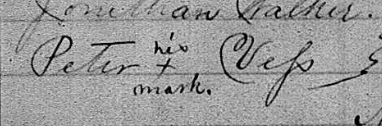 Jonathan Walker.
his
Peter + Vess
mark.